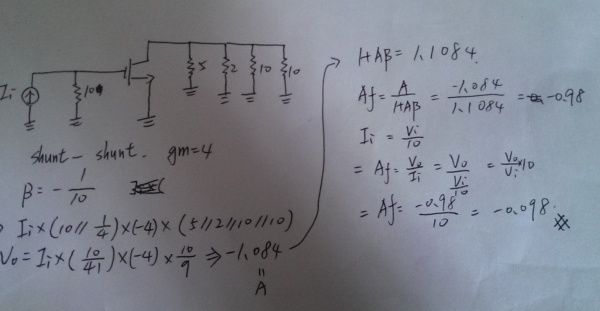 Ii
10
5
2
10
10
shunt - shunt. gm=4
β = - 1/10
Ii × (10 // 1/4) × (-4) × (5//2//10//10)
Vo = Ii × (10/41) × (-4) × 10/9 ⇒ -1.084
=
A
HAβ = 1.1084
Af = A/HAβ = -1.084/1.1084 = -0.98
Ii = Vi/10
= Af = Vo/Ii = Vo/(Vi/10) = Vo/Vi × 10
= Af = -0.98/10 = -0.098